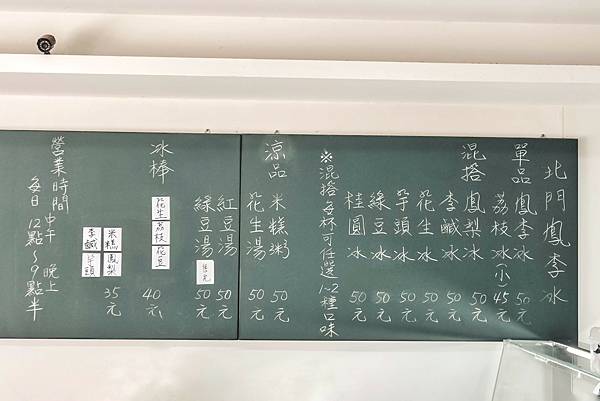 北門鳳李冰
單品 鳳李冰 50元
荔枝冰(小) 45元
混搭 鳳梨冰 50元
李鹹冰 50元
花生冰 50元
芋頭冰 50元
綠豆冰 50元
桂圓冰 50元
※混搭每杯可任選1~2種口味
涼品 米糕粥 50元
花生湯 50元
紅豆湯 50元
綠豆湯 50元
售完
冰棒
花生 荔枝 花豆 40元
米糕 鳳梨
李鹹 芋頭
35元
營業時間
每日 中午12點~晚上9點半